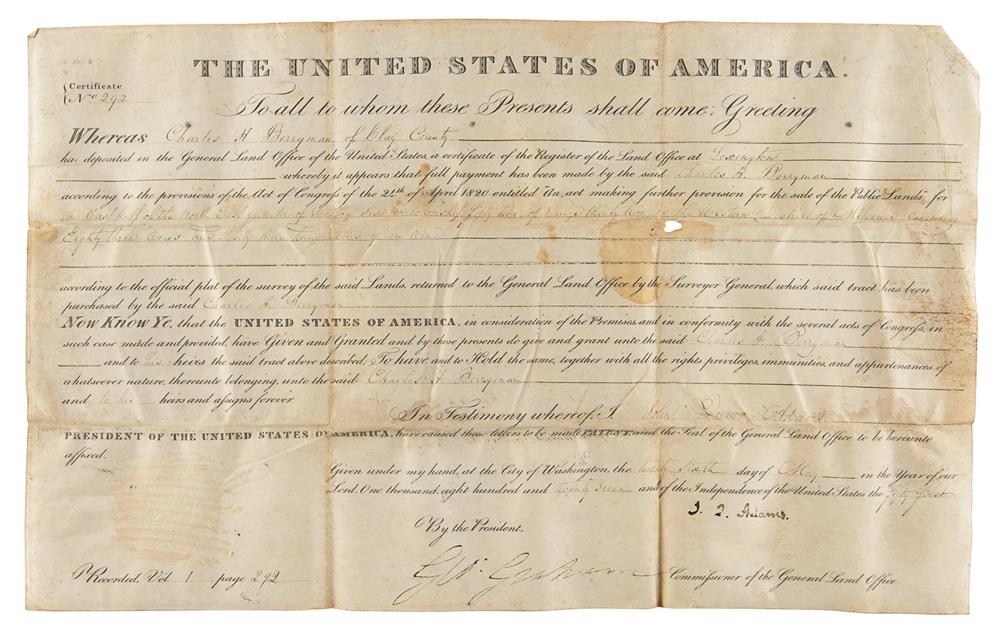 THE UNITED STATES OF AMERICA.
Certificate
No. 292
To all to whom these Presents shall come: Greeting
Whereas Charles H Berryman of Clay County
has deposited in the General Land Office of the United States, a certificate of the Register of the Land Office at Lexington
whereby it appears that full payment has been made by the said Charles H. Berryman
according to the provisions of the Act of Congress of the 24th of April 1820 entitled "An act making further provision for the sale of the Public Lands," for
the East half of the North East quarter of section Township fifty two of range thirty two District of Missouri Containing
Eighty three acres and hundredths of an acre
according to the official plat of the survey of the said Lands, returned to the General Land Office by the Surveyor General, which said tract has been
purchased by the said Charles H. Berryman
Now Know Ye, that the UNITED STATES OF AMERICA, in consideration of the Premises, and in conformity with the several acts of Congress, in
such case made and provided, have Given and Granted and by these presents do give and grant unto the said Charles H. Berryman
and to his heirs the said tract above described: To have and to Hold the same, together with all the rights, privileges, immunities, and appurtenances of
whatsoever nature, thereunto belonging, unto the said Charles H. Berryman
and to his heirs and assigns forever.
In Testimony whereof, I John Quincy Adams
PRESIDENT OF THE UNITED STATES OF AMERICA, have caused these letters to be made PATENT, and the Seal of the General Land Office to be hereunto
affixed.
Given under my hand, at the City of Washington, the twenty sixth day of May in the Year of our
Lord, One thousand, eight hundred and twenty seven and of the Independence of the United States the fifty first
J. Q. Adams.
By the President.
Geo. Graham Commissioner of the General Land Office.
Recorded, Vol 1 page 292